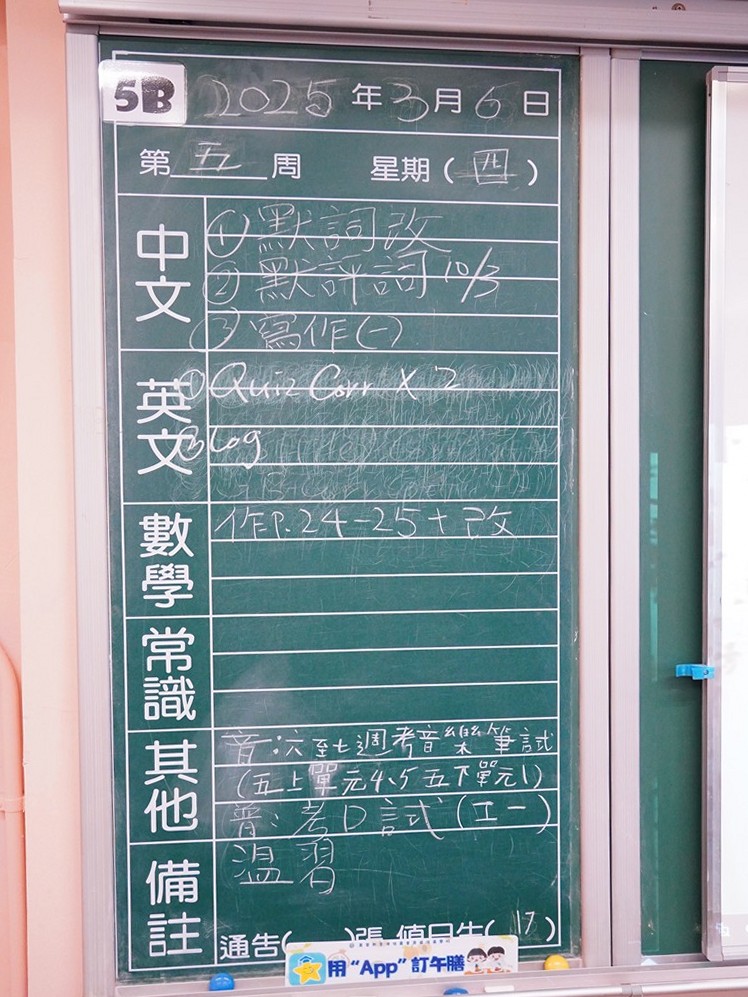 5B 2025年3月6日
第五周 星期(四)
中文
①默詞改
②默評詞10/3
③寫作(一)
英文
①Quiz Corr × 2
②Log
數學
作P.24-25+改
常識
其他
音:六至七週考音樂筆試
(五上單元4、5五下單元1)
普:考口試(工一)
備註
溫習
通告( )張 值日生(17)
用“App”訂午膳